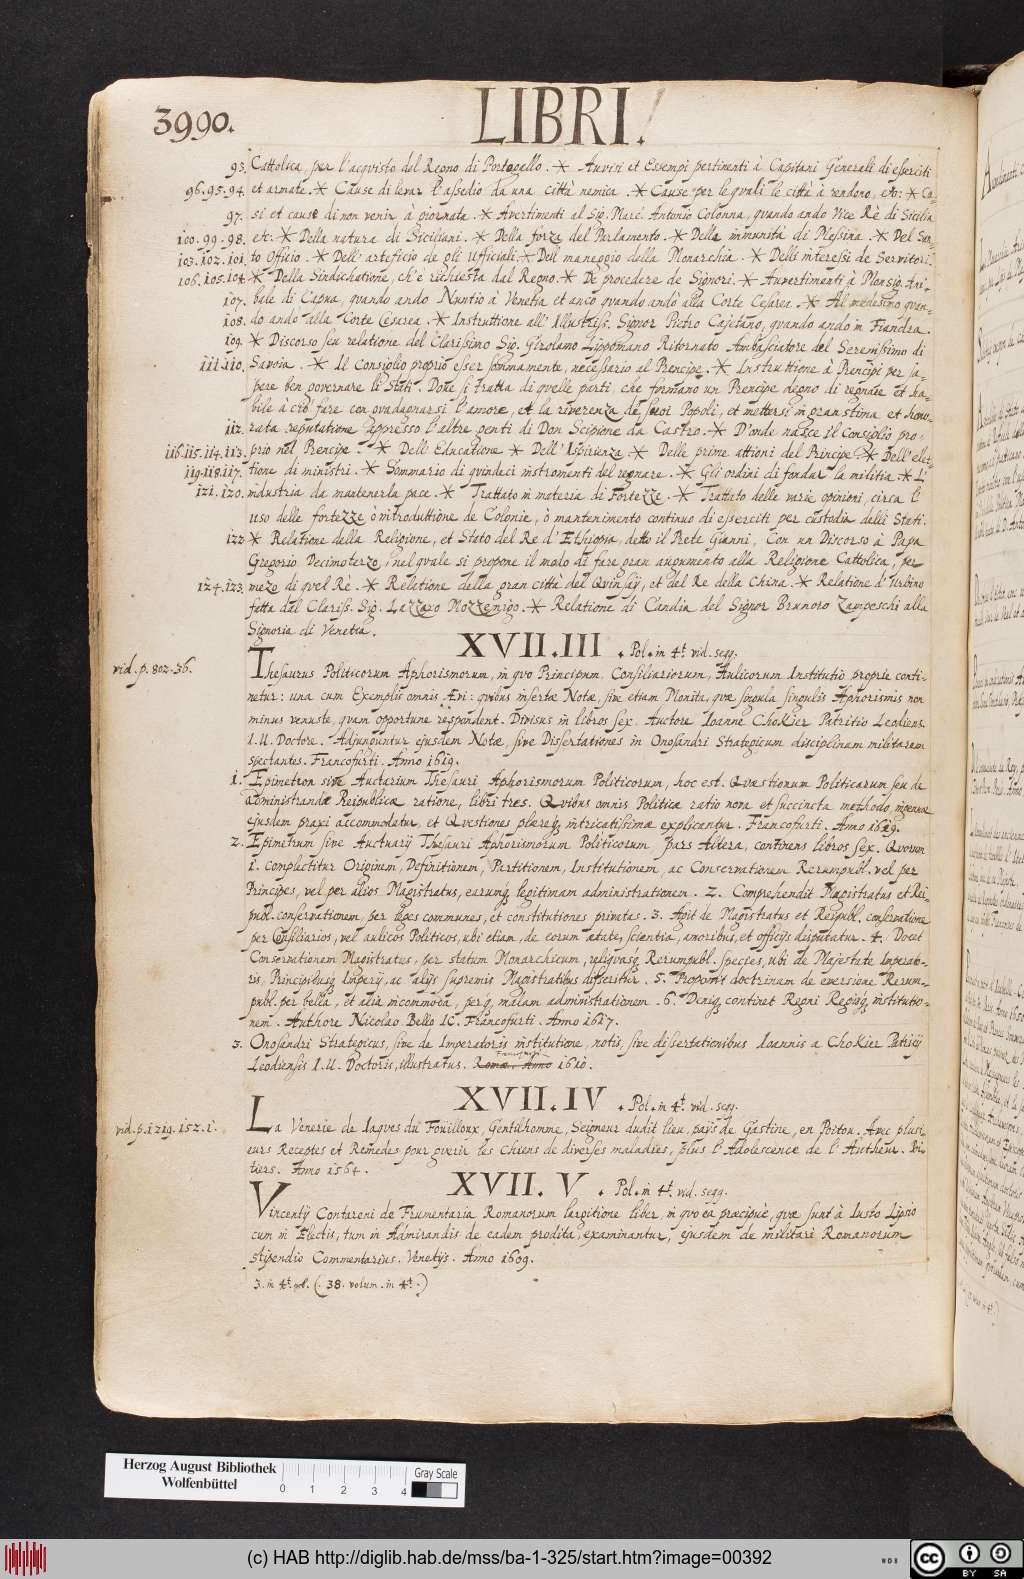 3990.
LIBRI.
93. Cattolica per l'acqvisto del Regno di Portogallo. * Auvisi et Essempi pertinenti à Capitani Generali di eserciti
96.95.94. et armate. * Cause di levar l'assedio da una città nemica. * Cause per le quali le città si rendono, etc: * Ca-
97. si et cause di non venir à giornata. * Avertimenti al Sig. Marc. Antonio Colonna, quando andò Vice Rè di Sicilia
100.99.98. etc. * Della natura di Siciliani. * Della forza del Parlamento. * Della immunità di Messina. * Del San-
103.102.101. to Officio. * Dell' arteficio de gli Ufficiali. * Dell maneggio della Monarchia. * Delli interessi de Servitori.
106.105.104. * Della Sindichatione, ch'è richiesta dal Regno. * De procedere de Signori. * Auvertimenti à Monsig. Ani-
107. bale di Capua, quando andò Nuntio à Venetia et anco quando andò alla Corte Cesarea. * Al medesimo quan-
108. do andò alla Corte Cesarea. * Instruttione all' Illustriss. Signor Pietro Cajetano, quando andò in Fiandra.
109. * Discorso seu relatione del Clarissimo Sig. Girolamo Lippomano Ritornato Ambasciatore del Serenissimo di
111.110. Savoia. * Il Consiglio proprio esser sommamente necessario al Prencipe. * Instruttione à Prencipi per sa-
pere ben governare li Stati. Doue si tratta di quelle parti che formano un Prencipe degno di regnare et ha-
bile à ciò fare con guadagnarsi l'amore, et la riverenza de suoi Popoli, et mettersi in gran stima et hono-
112. rata reputatione appresso l'altre genti di Don Scipione da Castro. * D'onde nasce il Consiglio pro-
116.115.114.113. prio nel Prencipe. * Dell' Educatione * Dell' Isperienza * Delle prime attioni del Principe * Dell' elet-
119.118.117. tione di ministri. * Sommario di quindeci instromenti del regnare. * Gli ordini di fondar la militia. * L'
121.120. industria da mantenerla pace. * Trattato in materia de Fortezze. * Trattato delle varie opinioni circa l'
uso delle fortezze ò introduttione de Colonie, ò mantenimento continuo di esserciti per custodia delli Stati.
122 * Relatione della Religione, et Stato del Re d'Ethiopia, detto il Prete Gianni, Con un Discorso à Papa
Gregorio Decimoterzo, nel quale si propone il modo di fare gran augumento alla Religione Cattolica, per
124.123. mezo di quel Rè. * Relatione della gran città del Quinsaÿ, et del Re della China. * Relatione d'Urbino
fatta dal Clariss. Sig. Lazzaro Mozzenigo. * Relatione di Candia del Signor Brunoro Zampeschi alla
Signoria di Venetia.
XVII.III . Pol. in 4t. vid. seqq.
vid. p. 802. 36. Thesaurus Politicorum Aphorismorum, in quo Principum, Consiliariorum, Aulicorum Institutio proprie conti-
netur: una cum Exemplis omnis Ævi: quibus insertæ Notæ, sive etiam Monita, quæ singula singulis Aphorismis non
minus venuste, quam opportune respondent. Divisus in libros sex. Auctore Ioanne Chokier Patritio Leodiens.
I.U. Doctore. Adjunguntur ejusdem Notæ, sive Dissertationes in Onosandri Strategicum disciplinam militarem
spectantes. Francofurti. Anno 1619.
1. Epimetron sive Auctarium Thesauri Aphorismorum Politicorum, hoc est. Quæstionum Politicarum seu de
administrandæ Reipublicæ ratione, libri tres. Quibus omnis Politicæ ratio nova et succincta methodo, ingenuæ
ejusdem praxi accommodatur, et Qvestiones plæræq; intricatissimæ explicantur. Francofurti. Anno 1619.
2. Epimetrum sive Auctuarij Thesauri Aphorismorum Politicorum pars Altera, continens libros sex. Quorum
1. complectitur Originem, Definitionem, Partitionem, Institutionem, ac Conservationem Rerumpubl. vel per
Principes, vel per alios Magistratus, earumq; legitimam administrationem. 2. Comprehendit Magistratus et Rei-
publ. conservationem, per leges communes, et constitutiones privatas. 3. Agit de Magistratus et Reipubl. conservatione
per Consiliarios, vel aulicos Politicos, ubi etiam, de eorum ætate, scientia, moribus, et officijs disputatur. 4. Docet
Conservationem Magistratus, per statum Monarchicum, reliquasq; Rerumpubl. species, ubi de Majestate Imperato-
ris, Principibusq; Imperij, ac alijs supremis Magistratibus disseritur. 5. Proponit doctrinam de eversione Rerum-
publ. per bella, et alia incommoda, perq; malam administrationem. 6. Deniq; continet Regni Regisq; institutio-
nem. Authore Nicolao Bello IC. Francofurti. Anno 1617.
3. Onosandri Strategicus, sive de Imperatoris institutione, notis, sive dissertationibus Ioannis a Chokier Patricij
Leodiensis I.U. Doctoris, illustratus. Romæ. Anno 1610.
XVII.IV . Pol. in 4t. vid. seqq.
vid. p. 1219. 152. 1. La Venerie de Iaques du Fouilloux, Gentilhomme, Seigneur dudit lieu, païs de Gastine, en Poitou. Avec plusi-
eurs Receptes et Remedes pour guerir les Chiens de diverses maladies, plus l'Adolescence de l'Autheur. Poi-
tiers. Anno 1564.
XVII. V . Pol. in 4t. vid. seqq.
Vincentij Contareni de Frumentaria Romanorum largitione liber, in quo ea præcipuè, quæ sunt à Iusto Lipsio
cum in Electis, tum in Admirandis de eadem prodita, examinantur, ejusdem de militari Romanorum
stipendio Commentarius. Venetijs. Anno 1609.
3. in 4t. pol. (. 38. volum. in 4t.)
Herzog August Bibliothek
Wolfenbüttel
0 1 2 3 4
Gray Scale
(c) HAB http://diglib.hab.de/mss/ba-1-325/start.htm?image=00392
WDB
cc BY SA